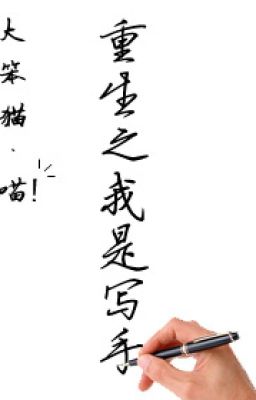 重生之我是写手
大笨猫、喵!